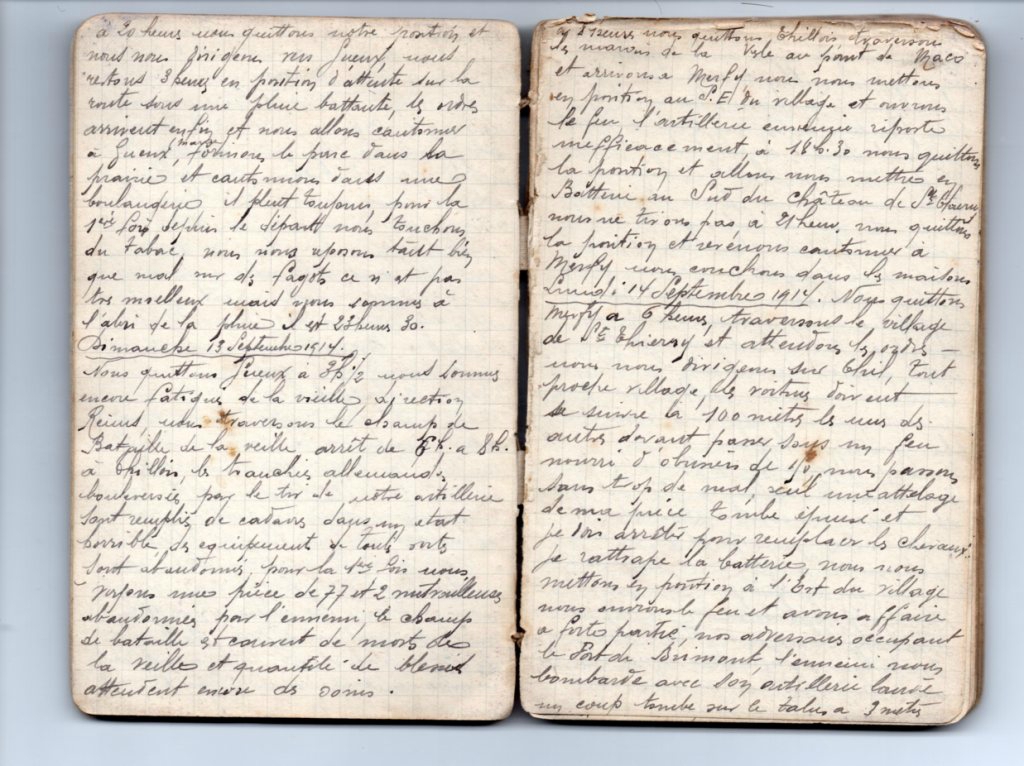 à 20 heures nous quittons notre position et
nous nous dirigeons vers Gueux, nous
restons 3 heures en position d'attente sur la
route sous une pluie battante, les ordres
arrivent enfin et nous allons cantonner
à Gueux, (Marne) formions le parc dans la
prairie et cantonnions dans une
boulangerie il pleut toujours, pour la
1ère fois depuis le départ nous touchons
du tabac, nous nous reposons tant bien
que mal sur des fagots ce n'est pas
très moelleux mais nous sommes à
l'abri de la pluie il est 23 heures 30.
Dimanche 13 Septembre 1914.
Nous quittons Gueux à 3h 1/2 nous sommes
encore fatigués de la vieille, direction
Reims, nous traversons le champ de
Bataille de la veille arrêt de h. à 8h.
à Thillois, les tranchées allemandes
bouleversées par le tir de notre artillerie
sont remplis de cadavres dans un état
horrible des equipement de toute sorte
sont abandonnés, pour la 1ère fois nous
voyons une pièce de 77 et 2 mitrailleuses
abandonnées par l'ennemi, le champ
de bataille est couvert de morts de
la veille et quantité de blessés
attendent encore des soins.
à heures nous quittons Thillois traversons
les marais de la Vesle au pont de Maco
et arrivons à Merfy nous nous mettons
en position au S.E du village et ouvrons
le feu l'artillerie ennemie riposte
inefficacement, à 18h.30 nous quittons
la position et allons nous mettre en
Batterie au Sud du château de St Thierry
nous ne tirons pas à 21 heur. nous quittons
la position et revenons cantonner à
Merfy nous couchons dans les maisons
Lundi 14 Septembre 1914. Nous quittons
Merfy à 6 heures, traversons le village
de St Thierry et attendons les ordres
nous nous dirigeons sur Thil, tout
proche village, les voitures doivent
se suivre à 100 mètres les unes des
autres devant passer sous un feu
nourri d'obusiers de nous passons
sans trop de mal, seul une attelage
de ma pièce tombe épuisé et
je dois arrêter pour remplacer les chevaux.
je rattrape la batterie, nous nous
mettons en position à l'Est du village
nous ouvrons le feu et avons affaire
a forte partie, nos adversaires occupant
le Fort de Brimont l'ennemi nous
bombarde avec son artillerie lourde
un coup tombe sur le talus a 3 mètres